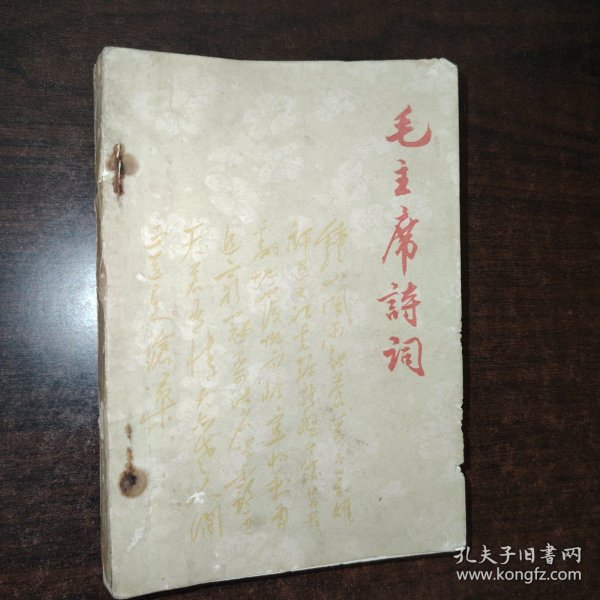 毛主席詩词
鍾山風雨起蒼黃百万雄
師过大江虎踞龍盤今勝昔天
翻地覆慨而慷宜將剩勇
追窮寇不可沽名學霸王
天若有情天亦老人间
正道是滄桑
孔夫子旧书网
www.kongfz.com